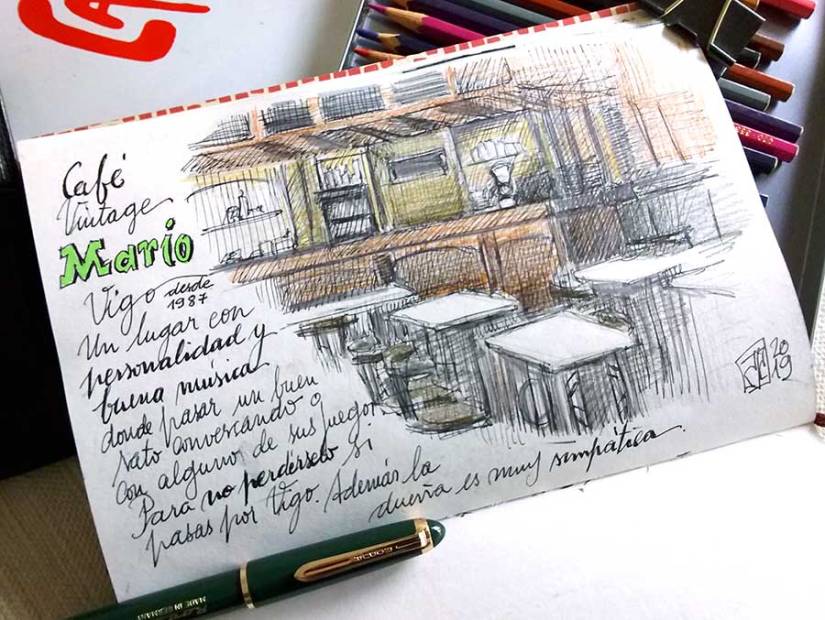 Café
Vintage
Mario
Vigo desde
1987
Un lugar con
personalidad y
buena música
donde pasar un buen
rato conversando o
con alguno de sus juegos
Para no perdérselo si
pasas por Vigo. Además la
dueña es muy simpática.
2019
MADE IN GERMANY